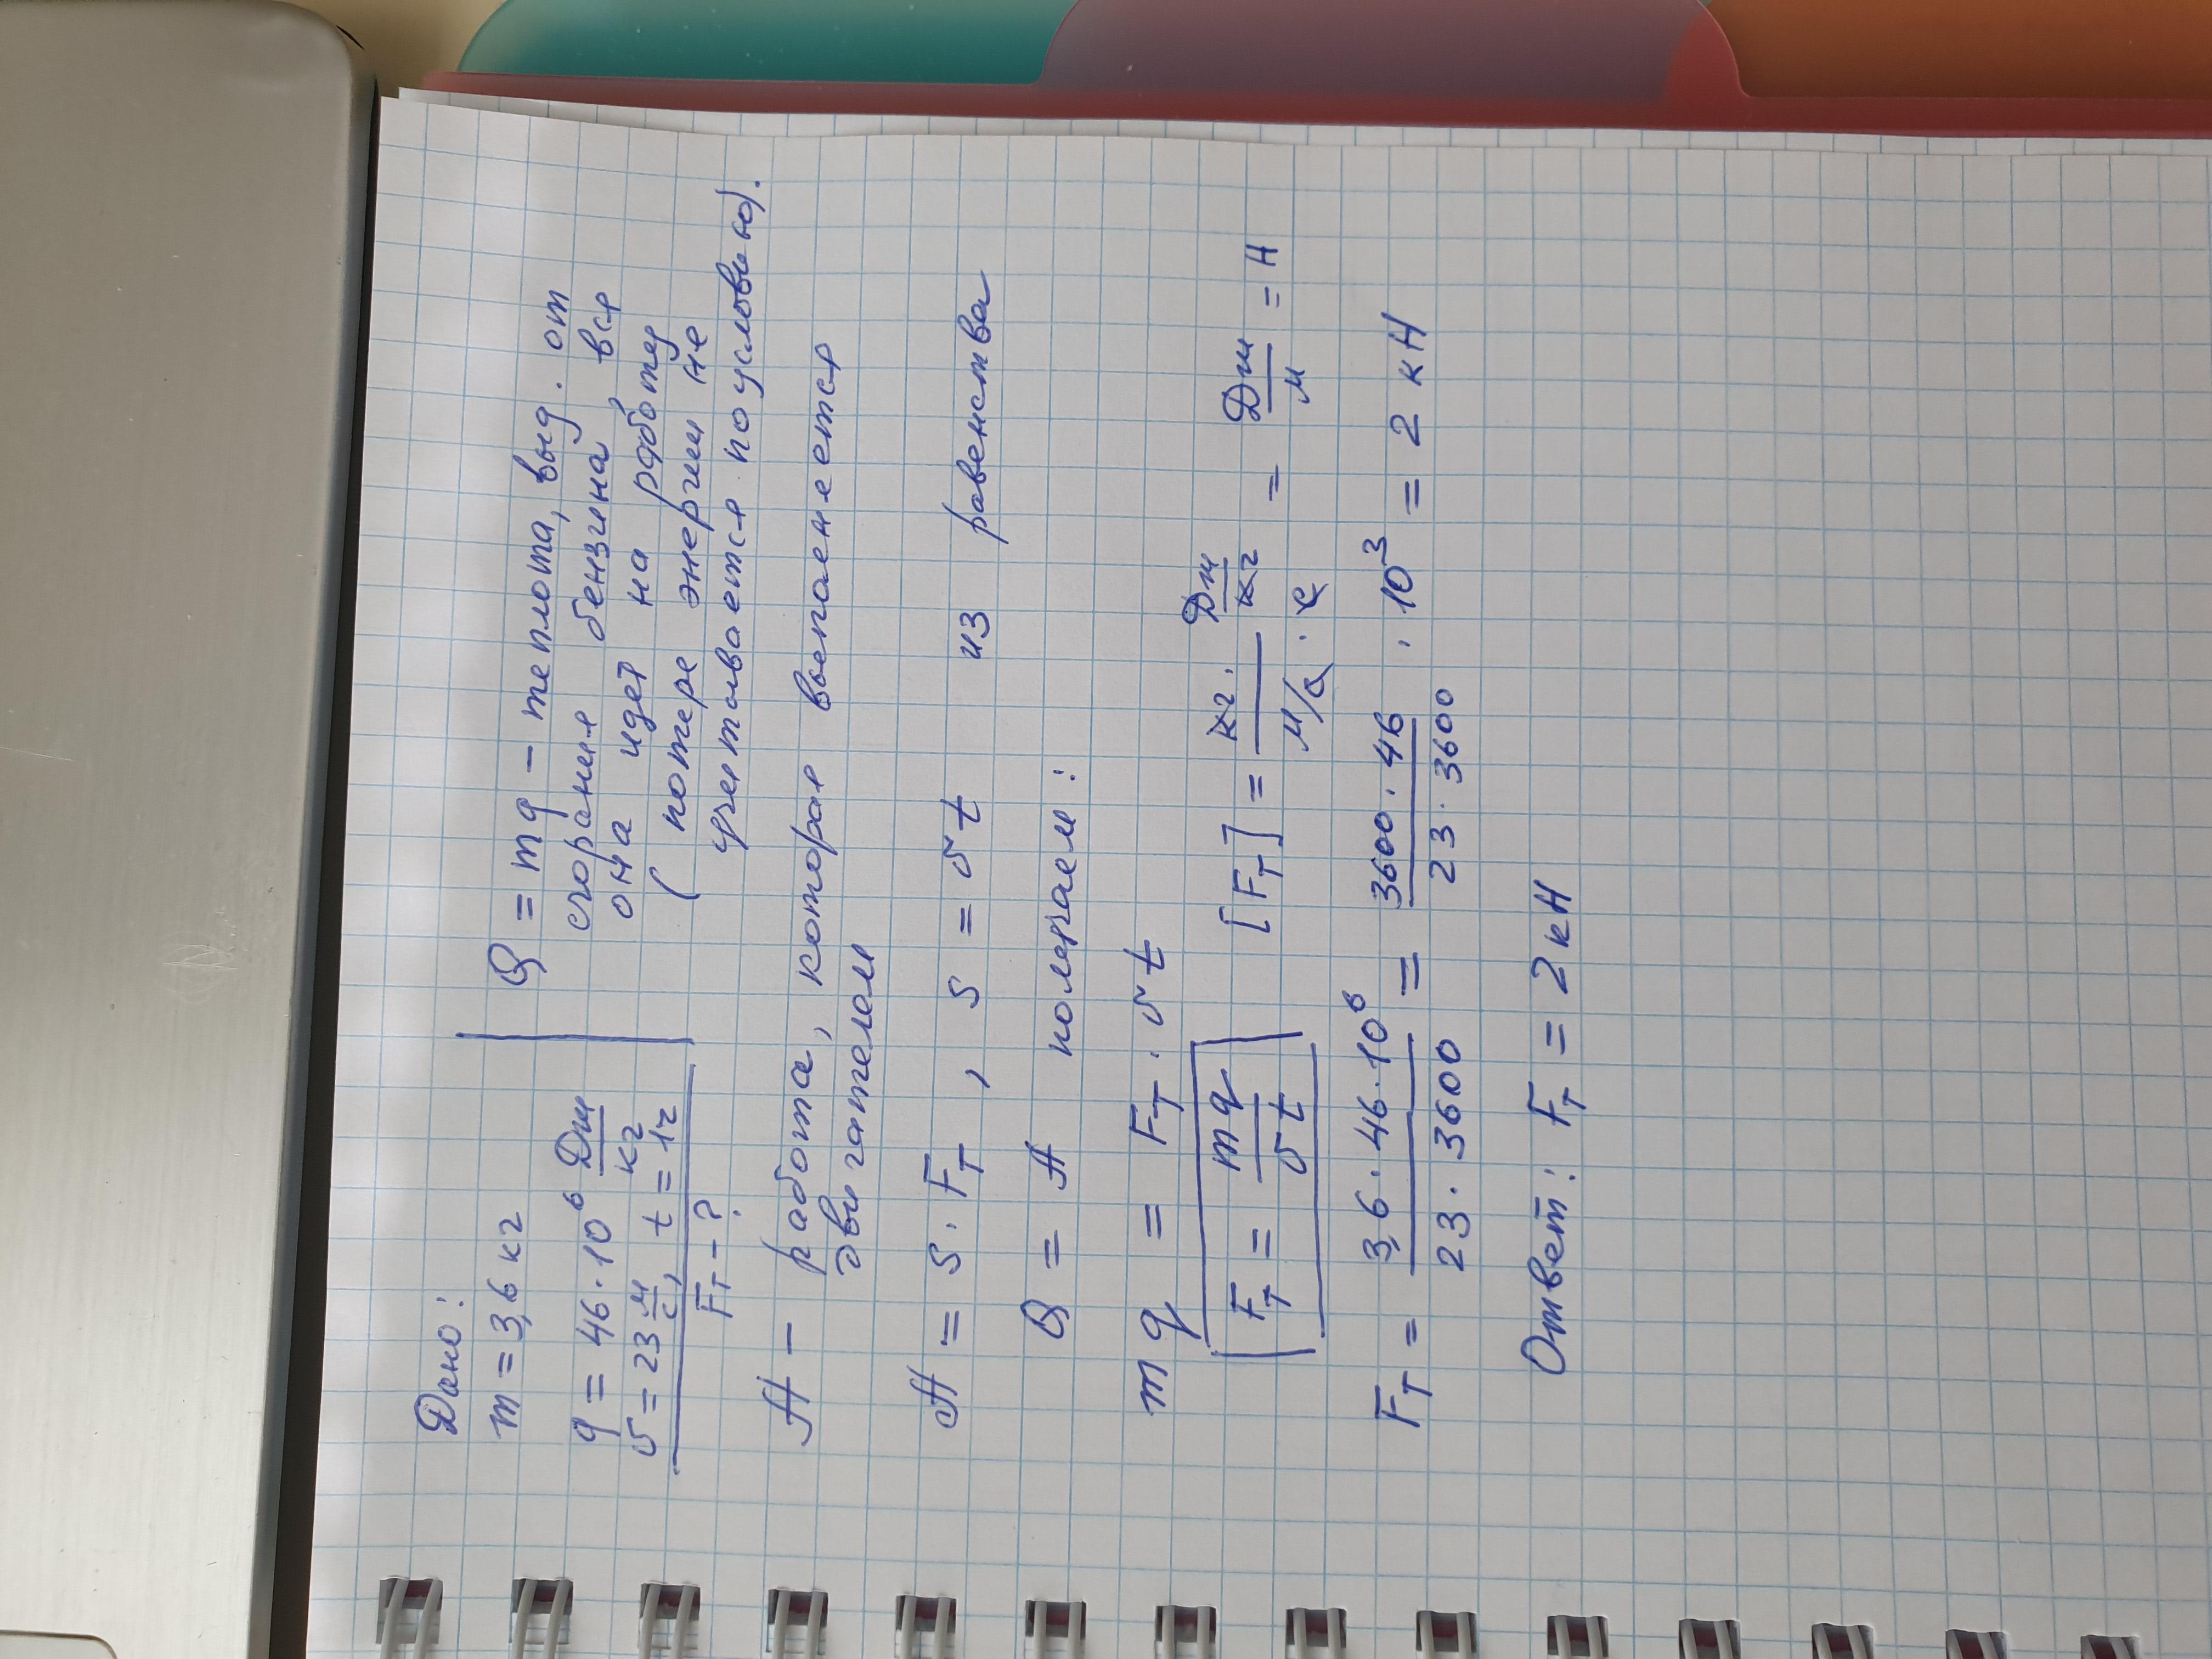 Дано:
m = 3,6 кг
q = 46·10⁶ Дж/кг
υ = 23 м/с, t = 1ч
Fт - ?
Q = mq – теплота, выд. от
сгорания бензина, вся
она идет на работу
( потере энергии не
учитывается по условию).
A – работа, которая выполняется
двигателем
A = s · Fт , s = υt из равенства
Q = A получаем:
mq = Fт · υt
Fт = mq/υt [Fт] = (кг · Дж/кг)/(м/с · с) = Дж/м = Н
Fт = (3,6 · 46 · 10⁶)/(23 · 3600) = (3600 · 46)/(23 · 3600) · 10³ = 2 кН
Ответ: Fт = 2 кН